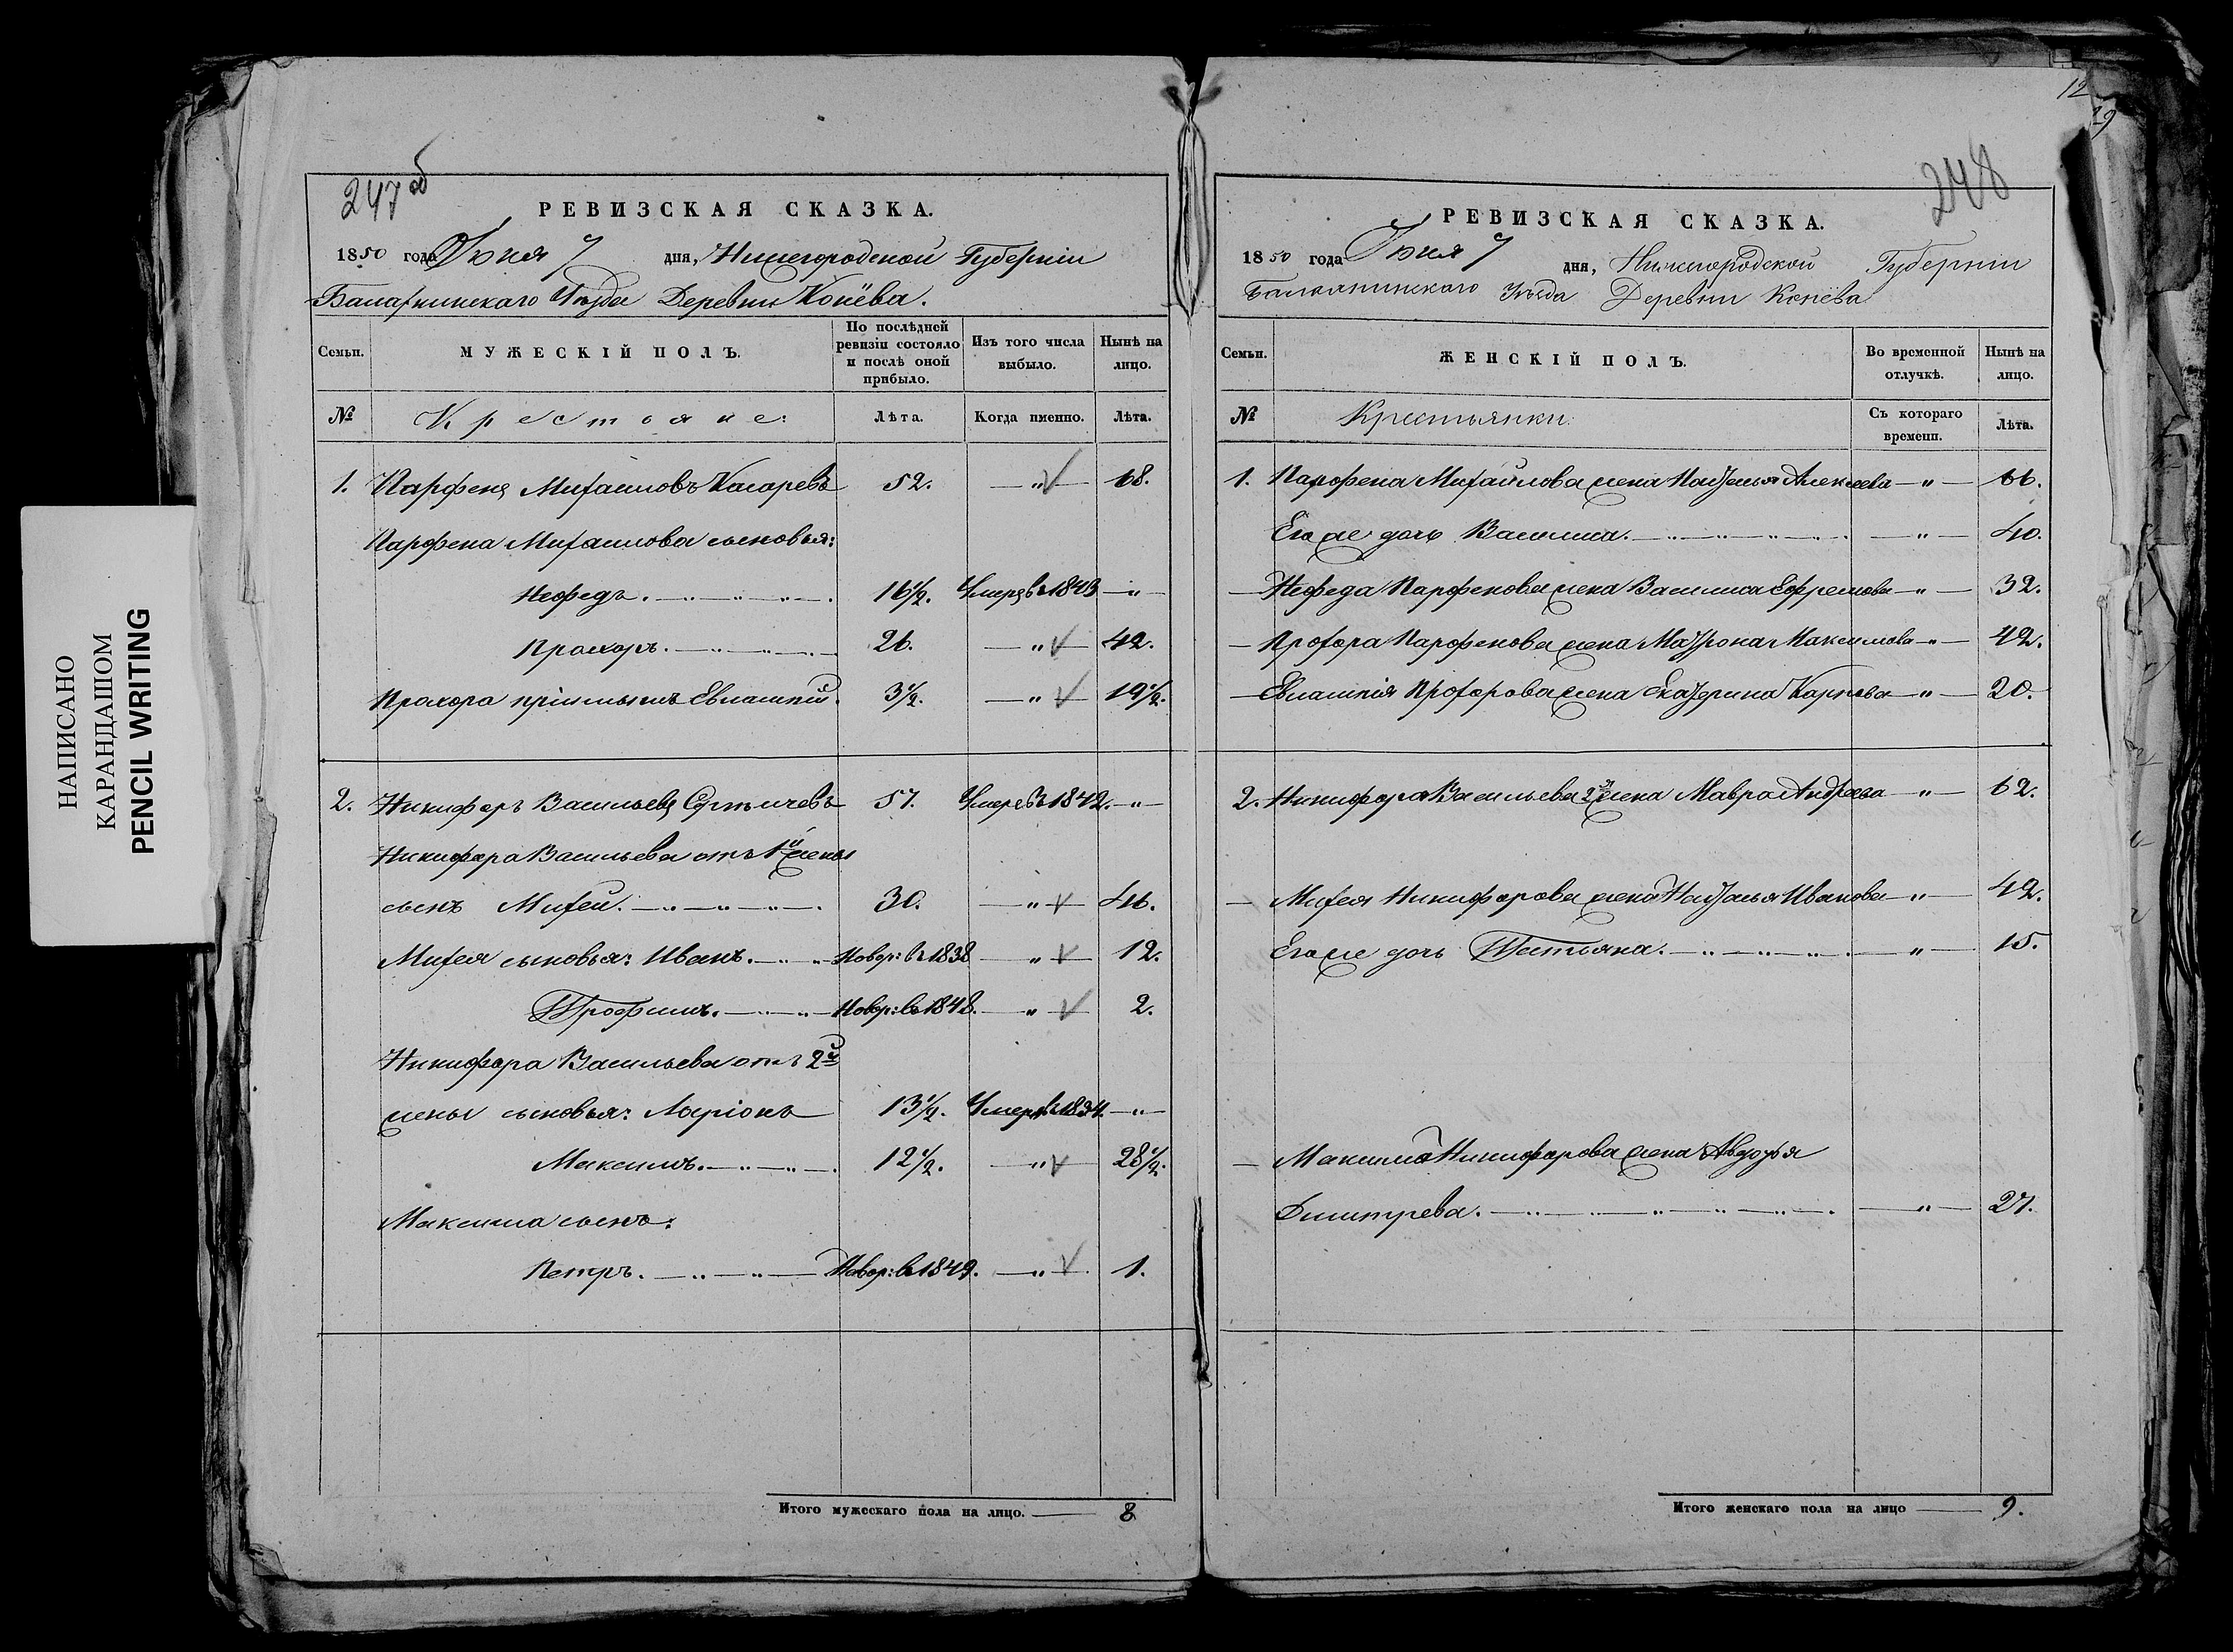 НАПИСАНО
КАРАНДАШОМ
PENCIL WRITING
247 об
РЕВИЗСКАЯ СКАЗКА.
1850 года Июня 7 дня, Нижегородской Губерніи
Балахнинскаго Уѣзда Деревни Конёва.
Семьи. МУЖЕСКІЙ ПОЛЪ. По послѣдней ревизіи состояло и послѣ оной прибыло. Изъ того числа выбыло. Нынѣ на лицо.
№ Крестьяне: Лѣта. Когда именно. Лѣта.
1. Парфенъ Михаиловъ 52. —"— 68.
Парфена Михаилова сыновья:
Нефедъ. 16½. Умеръ въ 1843 —"—
Прохоръ. 26. —"— 42.
Прохора пріимышъ Евлампій. 3½. —"— 19½.
2. Никифоръ Васильевъ 57. Умеръ въ 1842. —"—
Никифора Васильева отъ 1й жены
сынъ Михей. 30. —"— 46.
Михея сыновья: Иванъ. Новор: въ 1838 —"— 12.
Трофимъ. Новор: въ 1848. —"— 2.
Никифора Васильева отъ 2й
жены сыновья: Ларіонъ 13½. Умеръ въ 1834. —"—
Максимъ. 12½. —"— 28½.
Максима сынъ:
Петръ. Новор: въ 1849. —"— 1.
Итого мужескаго пола на лицо. 8
12
19
248
РЕВИЗСКАЯ СКАЗКА.
1850 года Июня 7 дня, Нижегородской Губерніи
Балахнинскаго Уѣзда Деревни Конёва
Семьи. ЖЕНСКІЙ ПОЛЪ. Во временной отлучкѣ. Нынѣ на лицо.
№ Крестьянки. Съ котораго времени. Лѣта.
1. Парфена Михайлова жена Наталья Алексеева —"— 66.
Его же дочь Василиса. —"— 40.
Нефеда Парфенова жена Василиса Ефремова —"— 32.
Прохора Парфенова жена Матрона Максимова —"— 42.
Евлампія Прохорова жена Екатерина Карпова —"— 20.
2. Никифора Васильева 2я жена Мавра Андреева —"— 62.
Михея Никифорова жена Наталья Иванова —"— 42.
Его же дочь Татьяна. —"— 15.
Максима Никифорова жена Авдотья
Димитрева. —"— 27.
Итого женскаго пола на лицо 9.